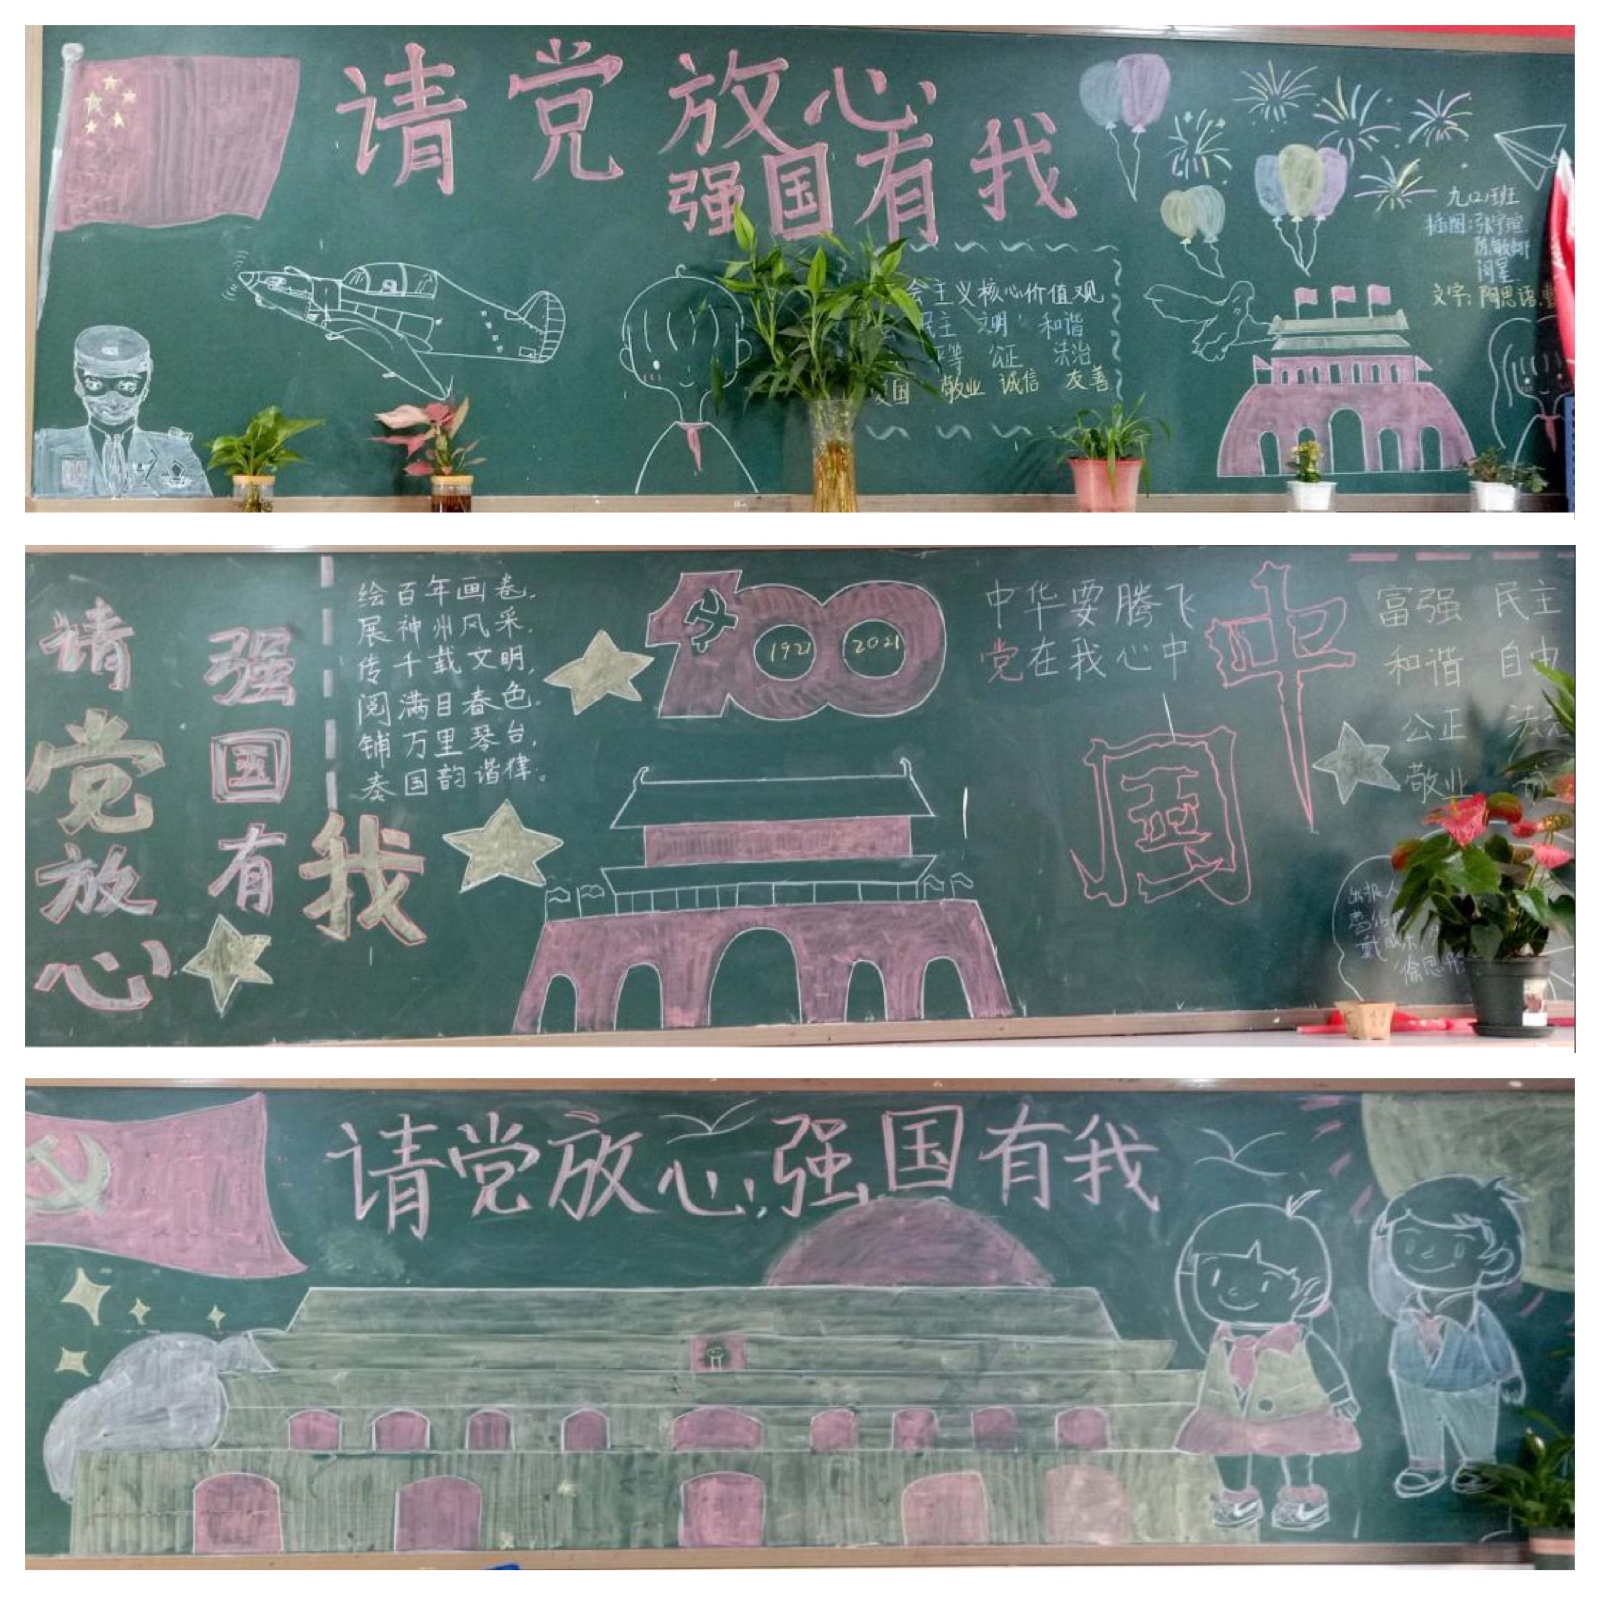 请党放心
强国有我
主义核心价值观
民主 文明 和谐
平等 公正 法治
国 敬业 诚信 友善
九(2)班
插图:张宇煊
陈敏娜
闵星
文字:陶思语
请党放心
强国有我
绘百年画卷,
展神州风采.
传千载文明,
阅满目春色。
铺万里琴台,
奏国韵谐律。
100
1921 2021
中华要腾飞
党在我心中
中国
富强 民主
和谐 自由
公正 法治
敬业
出报人
请党放心,强国有我